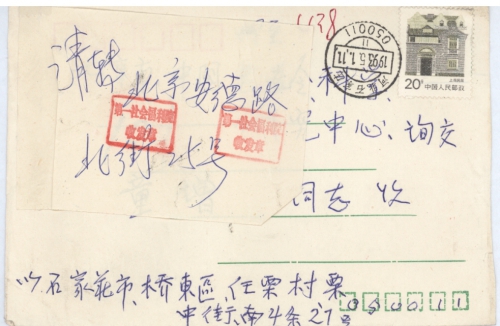 请转
北京安德路
北街25号
第一社会福利院
收发章
第一社会福利院
收发章
050011
1993.5.1.11
河北石家庄
20分
中国人民邮政
中心、询交
同志 收
石家莊市、桥東區、任栗村栗
中街、南4条27号
050011